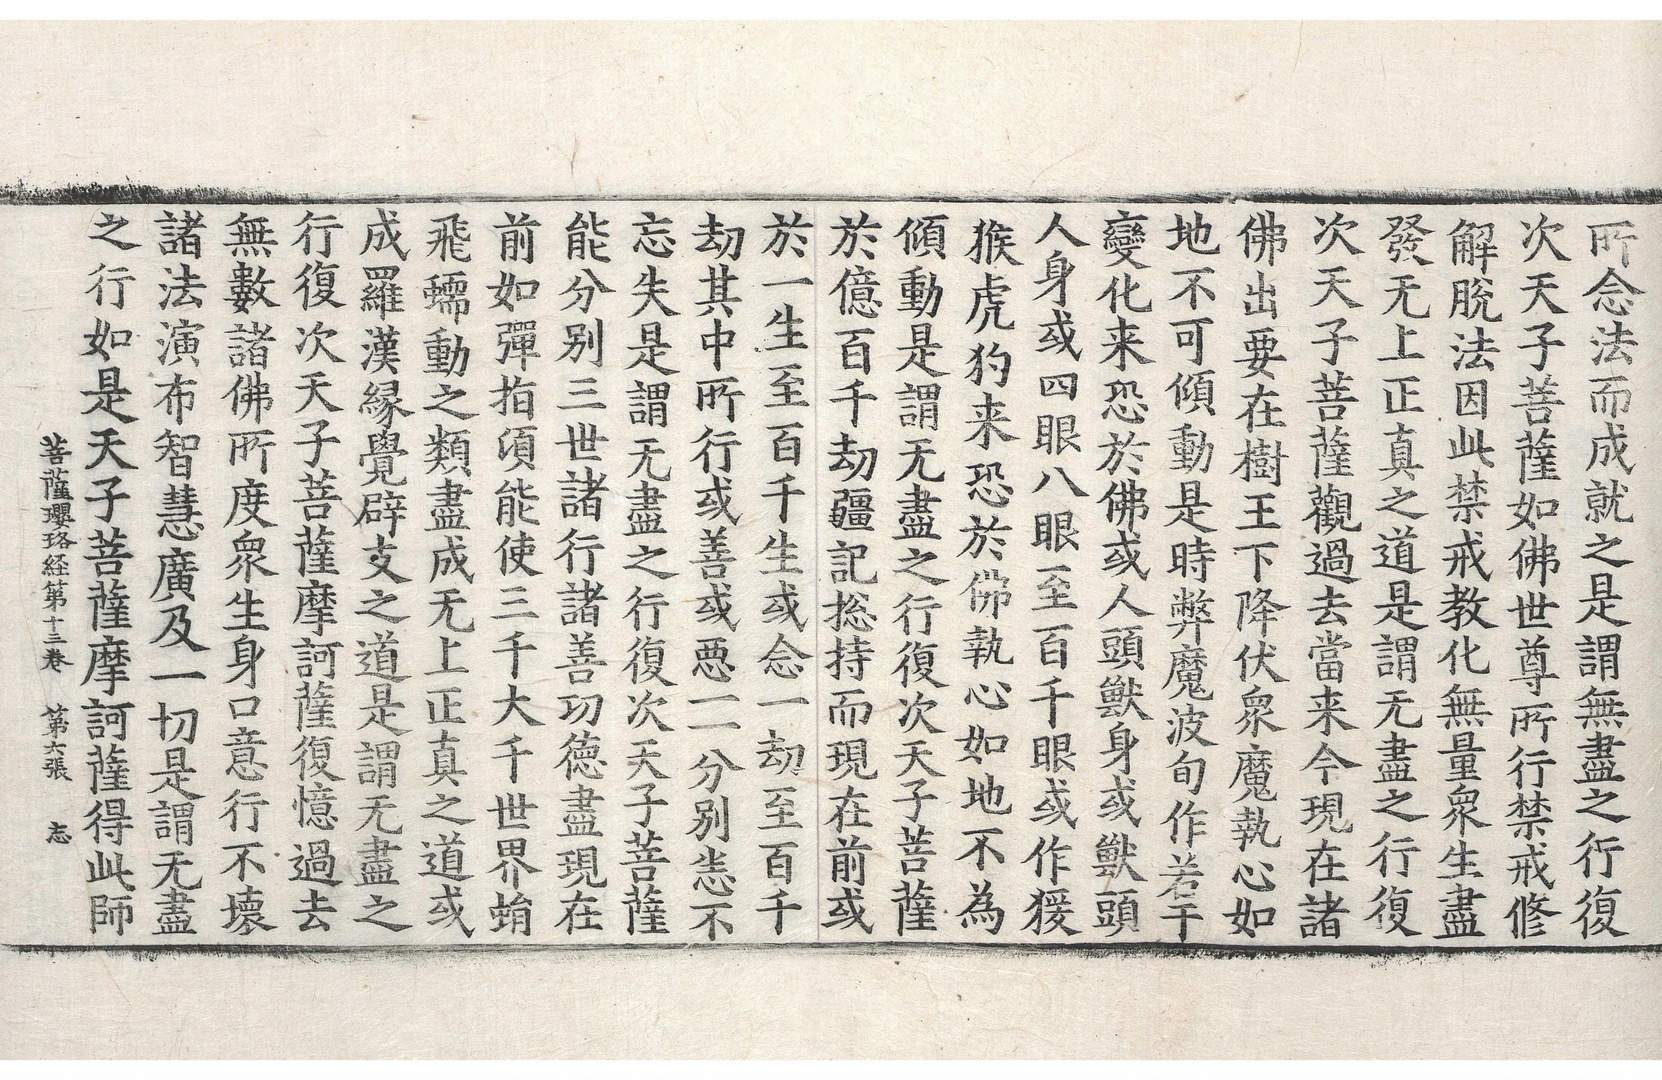 所念法而成就之是謂無盡之行復
次天子菩薩如佛世尊所行禁戒修
解脫法因此禁戒教化無量衆生盡
發无上正真之道是謂无盡之行復
次天子菩薩觀過去當来今現在諸
佛出要在樹王下降伏衆魔執心如
地不可傾動是時弊魔波旬作若干
變化来恐於佛或人頭獸身或獸頭
人身或四眼八眼至百千眼或作猨
猴虎犳来恐於佛執心如地不為
傾動是謂无盡之行復次天子菩薩
於億百千劫疆記捴持而現在前或
於一生至百千生或念一劫至百千
劫其中所行或善或惡一一分別恙不
忘失是謂无盡之行復次天子菩薩
能分别三世諸行諸善功德盡現在
前如彈指須能使三千大千世界蜎
飛蠕動之類盡成无上正真之道或
成羅漢縁覺辟支之道是謂无盡之
行復次天子菩薩摩訶薩復憶過去
無數諸佛所度衆生身口意行不壞
諸法演布智慧廣及一切是謂无盡
之行如是天子菩薩摩訶薩得此師
菩薩瓔珞経第十三卷 第六張 志